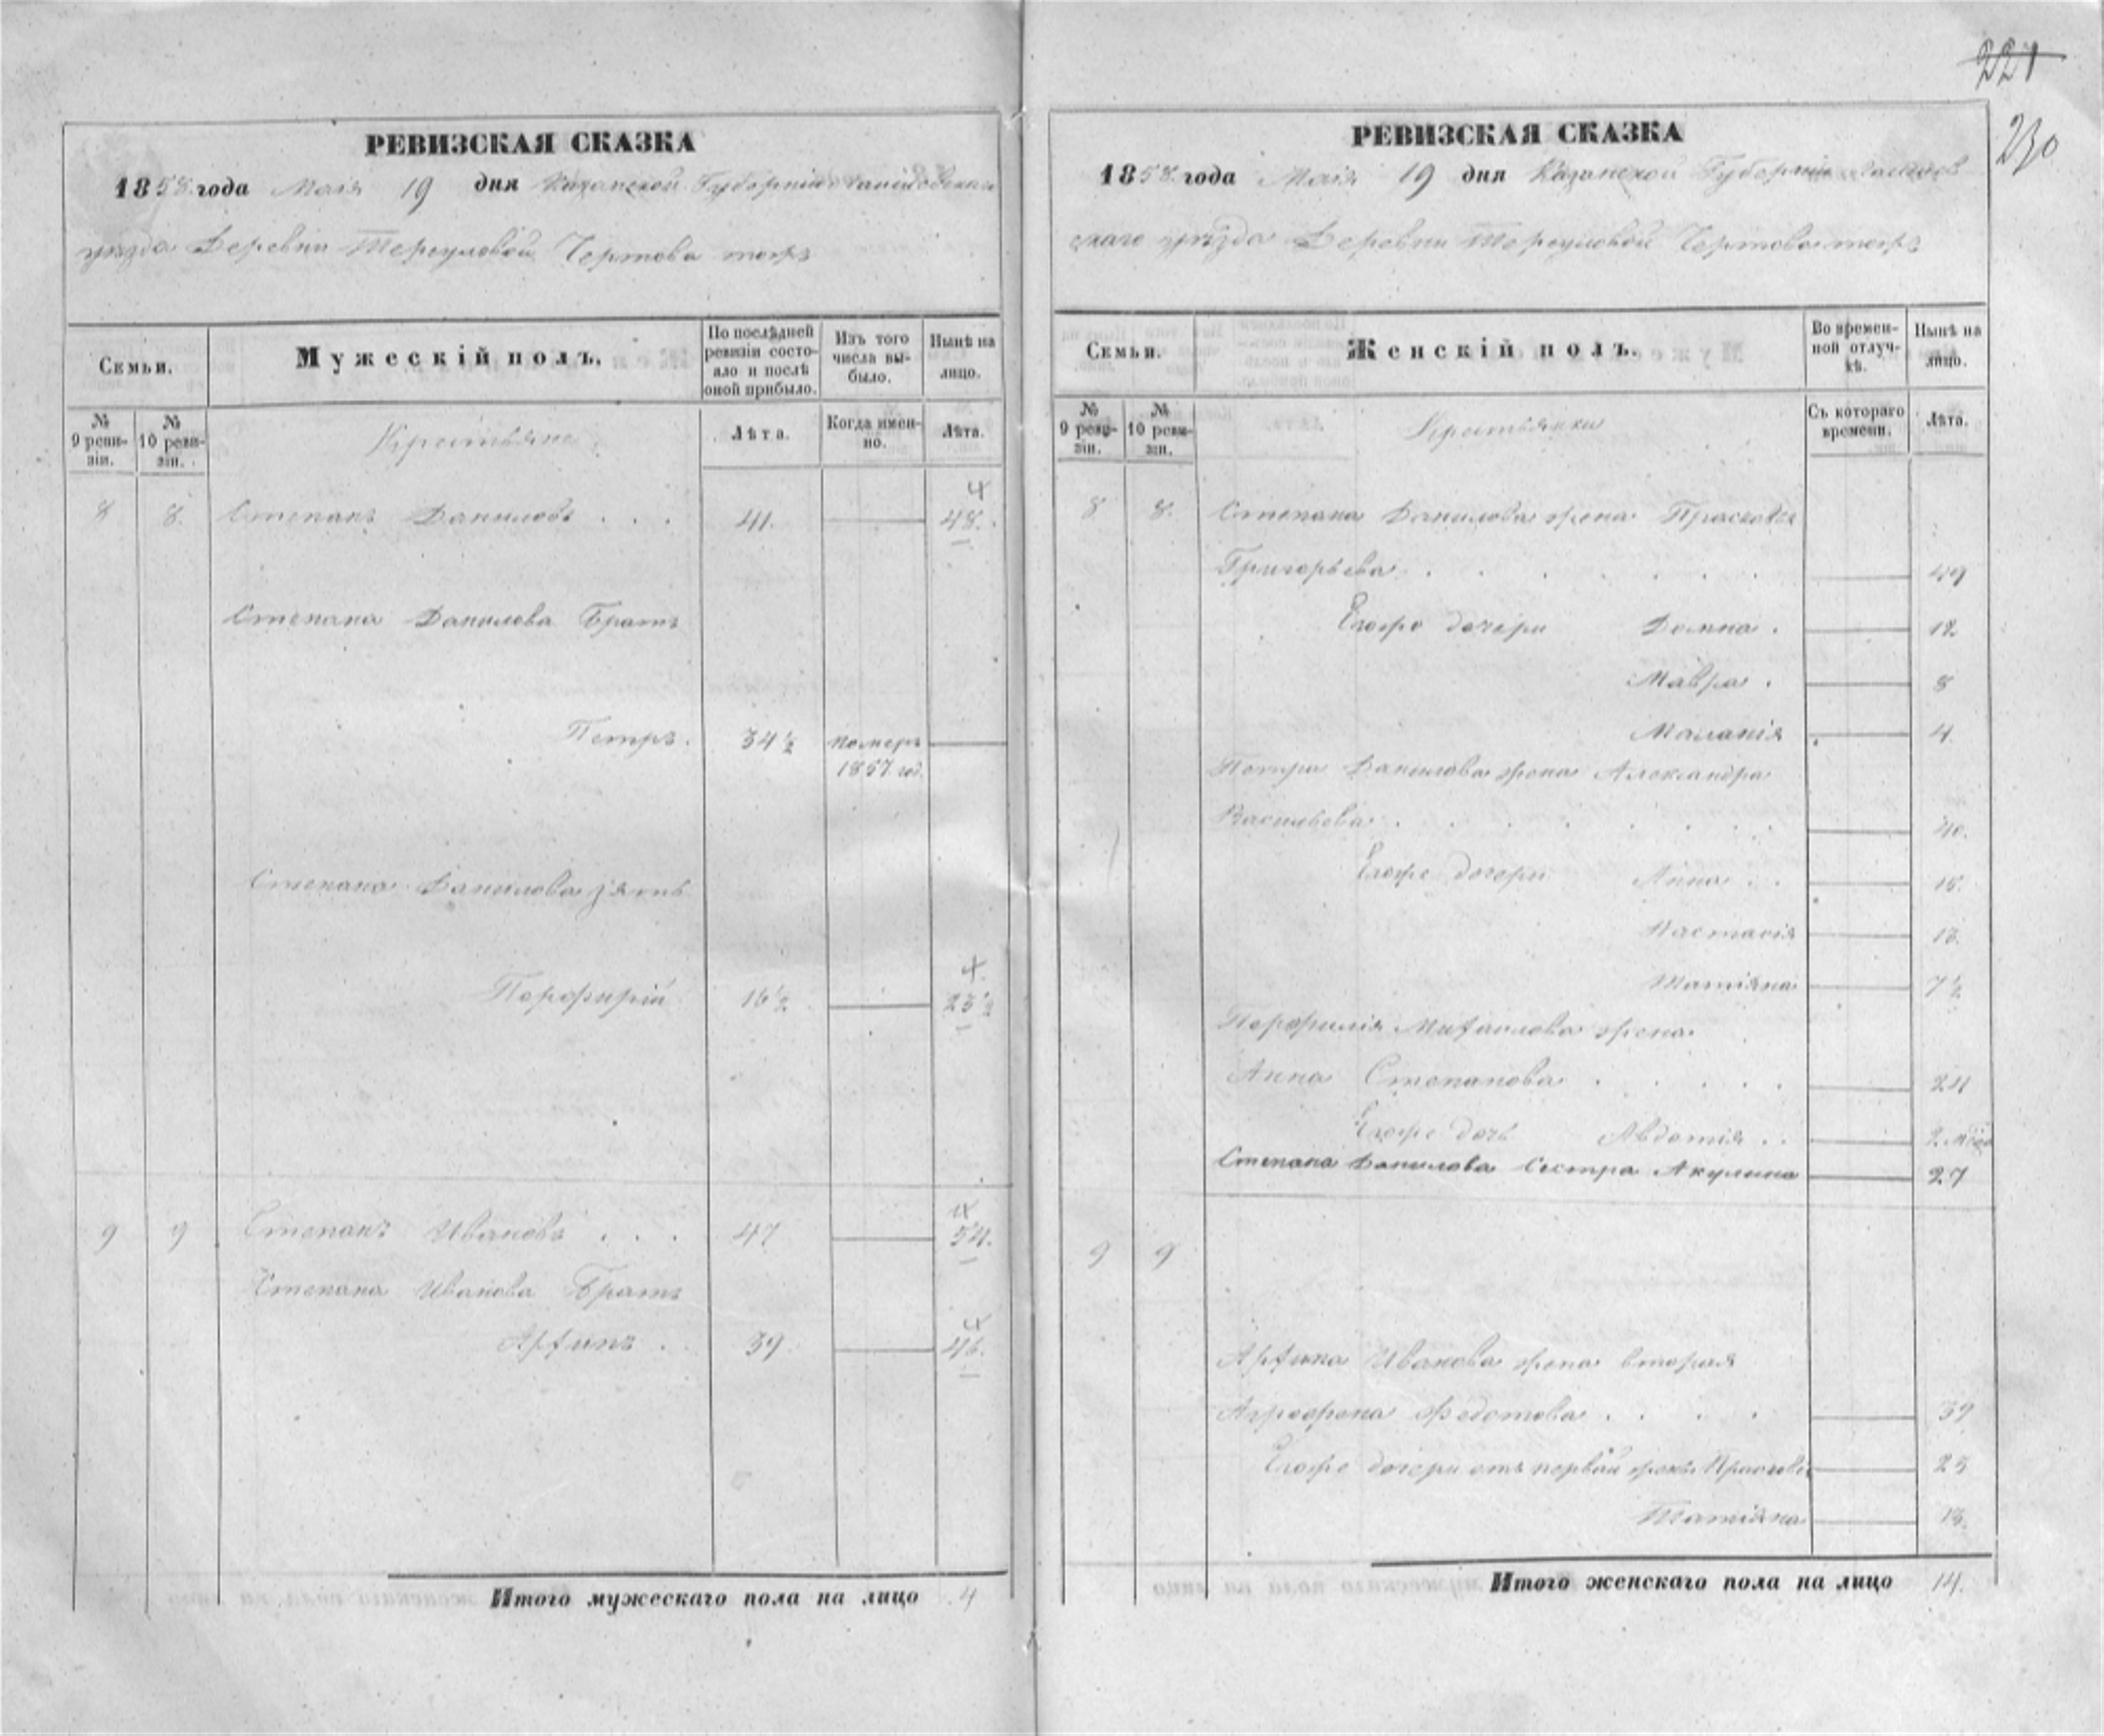 221
230
РЕВИЗСКАЯ СКАЗКА
1858 года Маія 19 дня Казанской Губерніи
уезда Деревни Чертова тожъ
Семьи.
Мужескій полъ.
По послѣдней ревизіи состояло и послѣ оной прибыло.
Изъ того числа выбыло.
Нынѣ на лицо.
№ 9 ревизіи.
№ 10 ревизіи.
Крестьяне
Лѣта.
Когда именно.
Лѣта.
8 8. Степанъ Даниловъ . . . 41. 48.
Степана Данилова Братъ
Петръ. 34½ померъ
1857 год.
Степана Данилова зять
Порфирій 16½ 23½
9 9 Степанъ Ивановъ . . . 47 54.
Степана Иванова Братъ
Архипъ . 39 46.
Итого мужескаго пола на лицо 4
РЕВИЗСКАЯ СКАЗКА
1858 года Маія 19 дня Казанской Губерніи
скаго уѣзда Деревни Чертова тожъ
Семьи.
Женскій полъ.
Во временной отлучкѣ.
Нынѣ на лицо.
№ 9 ревизіи.
№ 10 ревизіи.
Крестьянки
Съ котораго времени.
Лѣта.
8 8. Степана Данилова жена Прасковья
Григорьева . . . . . 49
Егоже дочери Домна . 12
Мавра . 8
Маланія 4
Петра Данилова жена Александра
Васильева . . . . . 40.
Егоже дочери Анна . .
Настасія 13.
Татіяна 7½
Порфилія Михаилова жена
Анна Степанова . . . . 24
Егоже дочь Авдотія . . 2
Степана Данилова Сестра Акулина 27
9 9
Архипа Иванова жена вторая
Агрофена Федотова . . . 39
Егоже дочери отъ первой жены 23
Татіяна 13.
Итого женскаго пола на лицо 14.